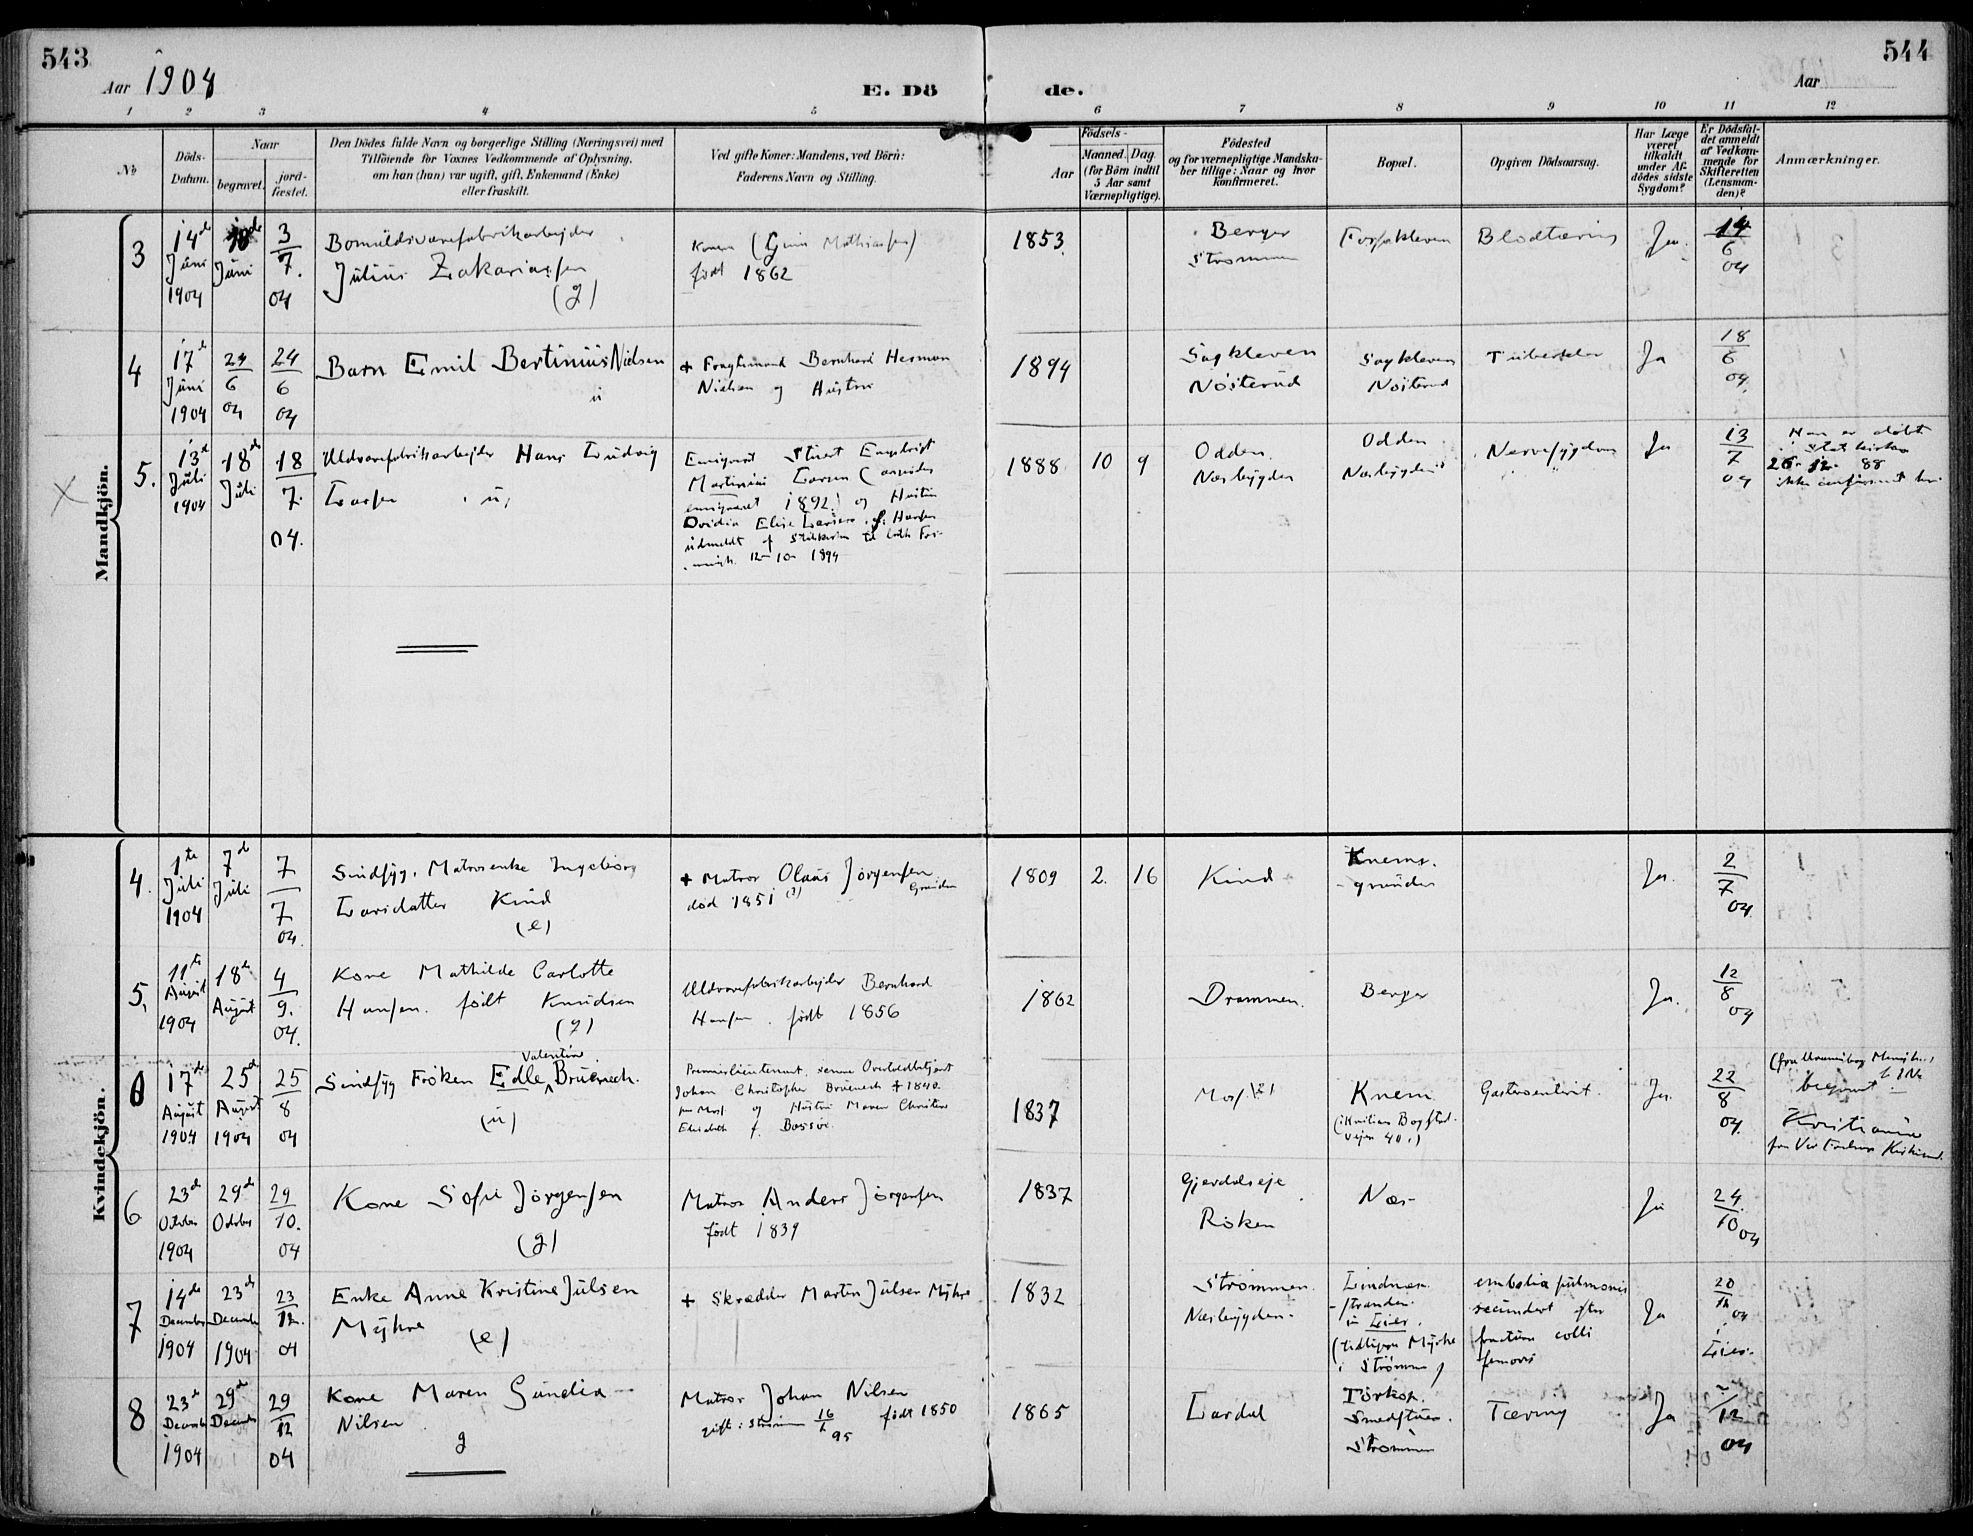 543
544
Aar 1904
E. Dö
de.
Aar
1 2 3 4 5 6 7 8 9 10 11 12
No
Döds-
Datum.
Naar
begravet.
jord-
fæstet.
Den Dödes fulde Navn og borgerlige Stilling (Næringsvei) med
Tilföiende for Voxnes Vedkommende af Oplysning,
om han (hun) var ugift, gift, Enkemand (Enke)
eller fraskilt.
Ved gifte Koner: Mandens, ved Börn:
Faderens Navn og Stilling.
Födsels-
Aar
Maaned.
Dag
(for Börn indtil
5 Aar samt
Værnepligtige).
Födested
og for værnepligtige Mandska-
ber tillige: Naar og hvor
Konfirmeret.
Bopæl.
Opgiven Dödsaarsag.
Har Læge
været
tilkaldt
under Af-
dödes sidste
Sygdom?
Er Dödsfal-
det anmeldt
af Vedkom-
mende for
Skifteretten
(Lensman-
den)?
Anmærkninger.
Mandkjön.
3
14de
Juni
1904
18de
Juni
3
7.
04
Bomuldsvarefabrikarbejder
Julius Zakariassen
(g)
Kone (Gina Mathiassen)
født 1862
1853.
Berger
Strømmen
Fossekleven
Blodtæring
Ja.
14
6
04
4
17de
Juni
1904
24
6
04
24
6
04
Barn Emil Bertinius Nielsen
u
+ Bernhard Herman
Nielsen og Hustru
1894
Sagkleven
Nösterud
Sagkleven
Nösterud
Tuberkler
Ja
18
6
04.
5.
13de
Juli
1904
18de
Juli
18
7.
04.
Uldvarefabrikarbejder Hans Ludvig
Larsen u,
Emigreret Stuert Engebrigt
Martinius Larsen
emigreret 1892) og Hustru
Ovidia Elise Larsen f. Hansen
udmeldt af Statskirken til
12-10-1894
1888 10 9
Odden.
Nesbygden
Odden
Nesbygden
Nervesygdom
Ja
13
7
04
Han er döbt
i Statskirken
26-12-88
ikke
Kvindekjön.
4.
1ste
Juli
1904
7de
Juli
7
7
04.
Sindsyg. Matrosenke Ingeborg
Larsdatter Kind
(e)
+ Matros Olaus Jörgensen
død 1851 (?)
1809 2. 16
Kind
Knems-
grunden
Ja.
2
7
04.
5,
11te
August
1904
18de
August
4
9.
04.
Kone Mathilde Carlotte
Hansen. født Knudsen
(g)
Uldvarefabrikarbejder Bernhard
Hansen. født 1856
1862
Drammen.
Berger
Ja.
12
8
04
0
17de
August
1904
25de
August
1904
25
8
04
Valentine
Sindsyg Fröken Edle Bruenech.
(u)
Premierlieutenant, senere Overtoldbetjent
Johan Christopher Bruenech + 1840.
og Hustru Maren Christine
Elisabeth f. Bassöe.
1837
Moss
Knem
Vejen 40.)
Gastroenterit.
Ja.
22
8
04.
begravet
Kristiania
6
23de
October
1904
29de
October
29
10.
04
Kone Sofie Jörgensen
(g)
Matros Anders Jörgensen
født 1839
1837
Gjerdalseje
Röken
Næs-
Ja
24.
10
04
7
14de
December
1904
23de
December
1904
23
12.
04
Enke Anne Kristine Julsen
Myhre (e)
+ Skrædder Martin Julsen Myhre
1832
Strømmen.
Nesbygden-
Lindnes-
stranden.
i Lier.
(tidligere Myhre
i Strømmen)
embolia pulmonis
secundært efter
fractura colli
femoris
Ja
20
12
04
i
Lier.
8
23de
December
1904
29de
December
29
12
04
Kone Maren Gundia
Nilsen
g
Matros Johan Nilsen
gift i Strømmen 16 95 født 1850
1865
Lardal
Torkop.
Smedstuen.
Strømmen
Tæring
Ja
12
04